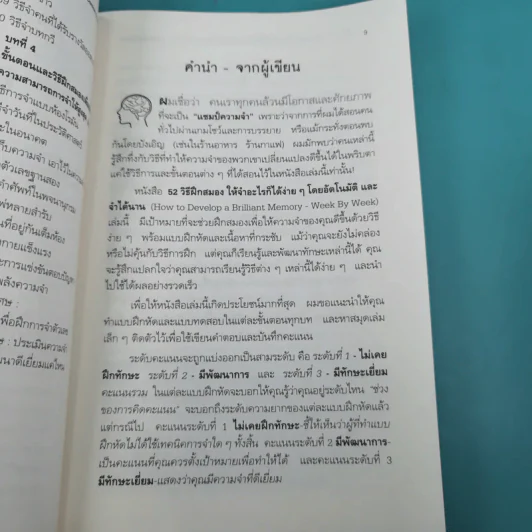 วิธีจำคนที่ได้รับรางวัล
วิธีจำบทกวี
บทที่ 4
ความสามารถการจำได้
การจำด้วยแบบห้องโรมัน
จำวันที่ในประวัติศาสตร์
ะในอนาคต
ก็บความจำ เอาไว้ใน
ตัวเลขฐานสอง
คำศัพท์ในพจนานุกรม
พทั้หลายสำรับ
นที่อยู่กันเต็มห้อง
กายแข็งแรง
ะการแข่งขันตอบปัญหา
พลังความจำ
ศษ :
เพื่อฝึกการจำตัวเลข
ษ : ประเมินความจำ
คำนำ - จากผู้เขียน
ผมเชื่อว่า คนเราทุกคนล้วนมีโอกาสและศักยภาพ
ที่จะเป็น "แชมป์ความจำ" เพราะว่าจากการที่ผมได้สอนคน
ทั่วไปผ่านเกมโชว์และการบรรยาย หรือแม้กระทั่งตอนพบ
กันโดยบังเอิญ (เช่นในร้านอาหาร ร้านกาแฟ) ผมมักพบว่าคนเหล่านี้
รู้สึกทึ่งกับวิธีที่ทำให้ความจำของพวกเขาเปลี่ยนแปลงดีขึ้นได้ในพริบตา
แค่ใช้วิธีการและขั้นตอนต่าง ๆ ที่ได้สอนไว้ในหนังสือเล่มนี้เท่านั้น!
หนังสือ 52 วิธีฝึกสมอง ให้จำอะไรก็ได้ง่าย ๆ โดยอัตโนมัติ และ
จำได้นาน (How to Develop a Brilliant Memory - Week By Week)
เล่มนี้ มีเป้าหมายที่จะช่วยฝึกสมองเพื่อให้ความจำของคุณดีขึ้นด้วยวิธี
ง่าย ๆ พร้อมแบบฝึกหัดและเนื้อหาที่กระชับ แม้ว่าคุณจะยังไม่คล่อง
หรือไม่คุ้นกับวิธีการฝึก แต่คุณก็เรียนรู้และพัฒนาทักษะเหล่านี้ได้ คุณ
จะรู้สึกแปลกใจว่าคุณสามารถเรียนรู้วิธีต่าง ๆ เหล่านี้ได้ง่าย ๆ และนำ
ไปใช้ได้ผลอย่างรวดเร็ว
เพื่อให้หนังสือเล่มนี้เกิดประโยชน์มากที่สุด ผมขอแนะนำให้คุณ
ทำแบบฝึกหัดและแบบทดสอบในแต่ละขั้นตอนทุกบท และหาสมุดเล่ม
เล็ก ๆ ติดตัวไว้เพื่อใช้เขียนคำตอบและบันทึกคะแนน
ระดับคะแนนจะถูกแบ่งออกเป็นสามระดับ คือ ระดับที่ 1 - ไม่เคย
ฝึกทักษะ ระดับที่ 2 - มีพัฒนาการ และ ระดับที่ 3 - มีทักษะเยี่ยม
คะแนนรวม ในแต่ละแบบฝึกหัดจะบอกให้คุณรู้ว่าคุณอยู่ระดับไหน "ช่วง
ของการคิดคะแนน" จะบอกถึงระดับความยากของแต่ละแบบฝึกหัดแล้ว
แต่กรณีไป คะแนนระดับที่ 1 ไม่เคยฝึกทักษะ-ชี้ให้เห็นว่าผู้ที่ทำแบบ
ฝึกหัดไม่ได้ใช้เทคนิคการจำใด ๆ ทั้งสิ้น คะแนนระดับที่ 2 มีพัฒนาการ-
เป็นคะแนนที่คุณควรตั้งเป้าหมายเพื่อทำให้ได้ และคะแนนระดับที่ 3
มีทักษะเยี่ยม-แสดงว่าคุณมีความจำที่ดีเยี่ยม